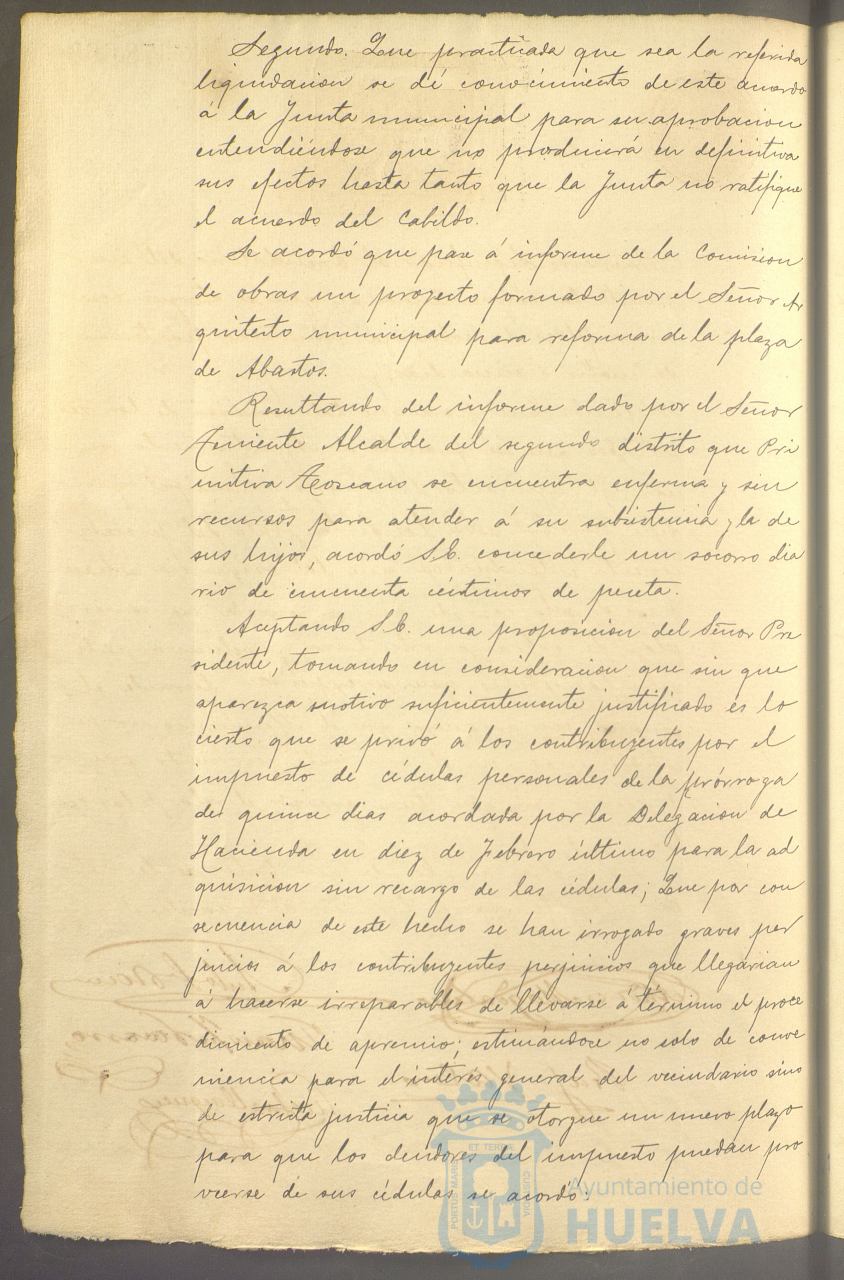 Segundo. Que practicada que sea la referida
liquidacion se dé conocimiento de este acuerdo
á la Junta municipal para su aprobacion
entendiéndose que no producirá en definitiva
sus efectos hasta tanto que la Junta no ratifique
el acuerdo del Cabildo.
Se acordó que pase á informe de la Comision
de obras un proyecto formado por el Señor Ar
quitecto municipal para reforma de la plaza
de Abastos.
Resultando del informe dado por el Señor
Teniente Alcalde del segundo distrito que Pri
mitiva Toscano se encuentra enferma y sin
recursos para atender á su subsistencia y la de
sus hijos, acordó S.E. concederle un socorro dia
rio de cincuenta céntimos de peseta.
Aceptando S.E. una proposicion del Señor Pre
sidente, tomando en consideracion que sin que
aparezca motivo suficientemente justificado es lo
cierto que se privó á los contribuyentes por el
impuesto de cédulas personales de la prórroga
de quince dias acordada por la Delegacion de
Hacienda en diez de Febrero último para la ad
quisicion sin recargo de las cédulas; Que por con
secuencia de este hecho se han irrogado graves per
juicios á los contribuyentes perjuicios que llegarian
á hacerse irreparables de llevarse á término el proce
dimiento de apremio; estimándose no solo de conve
niencia para el interés general del vecindario sino
de estricta justicia que se otorgue un nuevo plazo
para que los deudores del impuesto puedan pro
veerse de sus cédulas se acordó:
PORTUS MARIS ET TERRÆ CUSTODIA
Ayuntamiento de
HUELVA